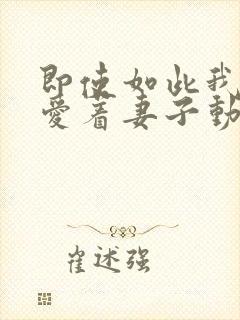 即使如此我
愛着妻子動
崔述强